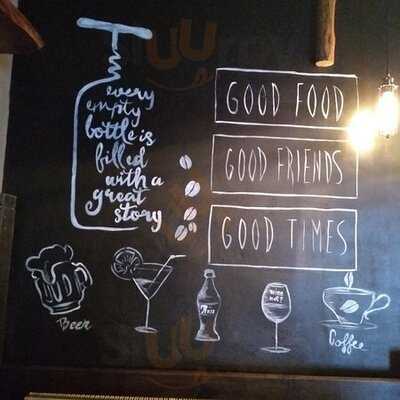 every
empty
bottle is
filled
with a
great
story
GOOD FOOD
GOOD FRIENDS
GOOD TIMES
Beer
wine
not?
Coffee